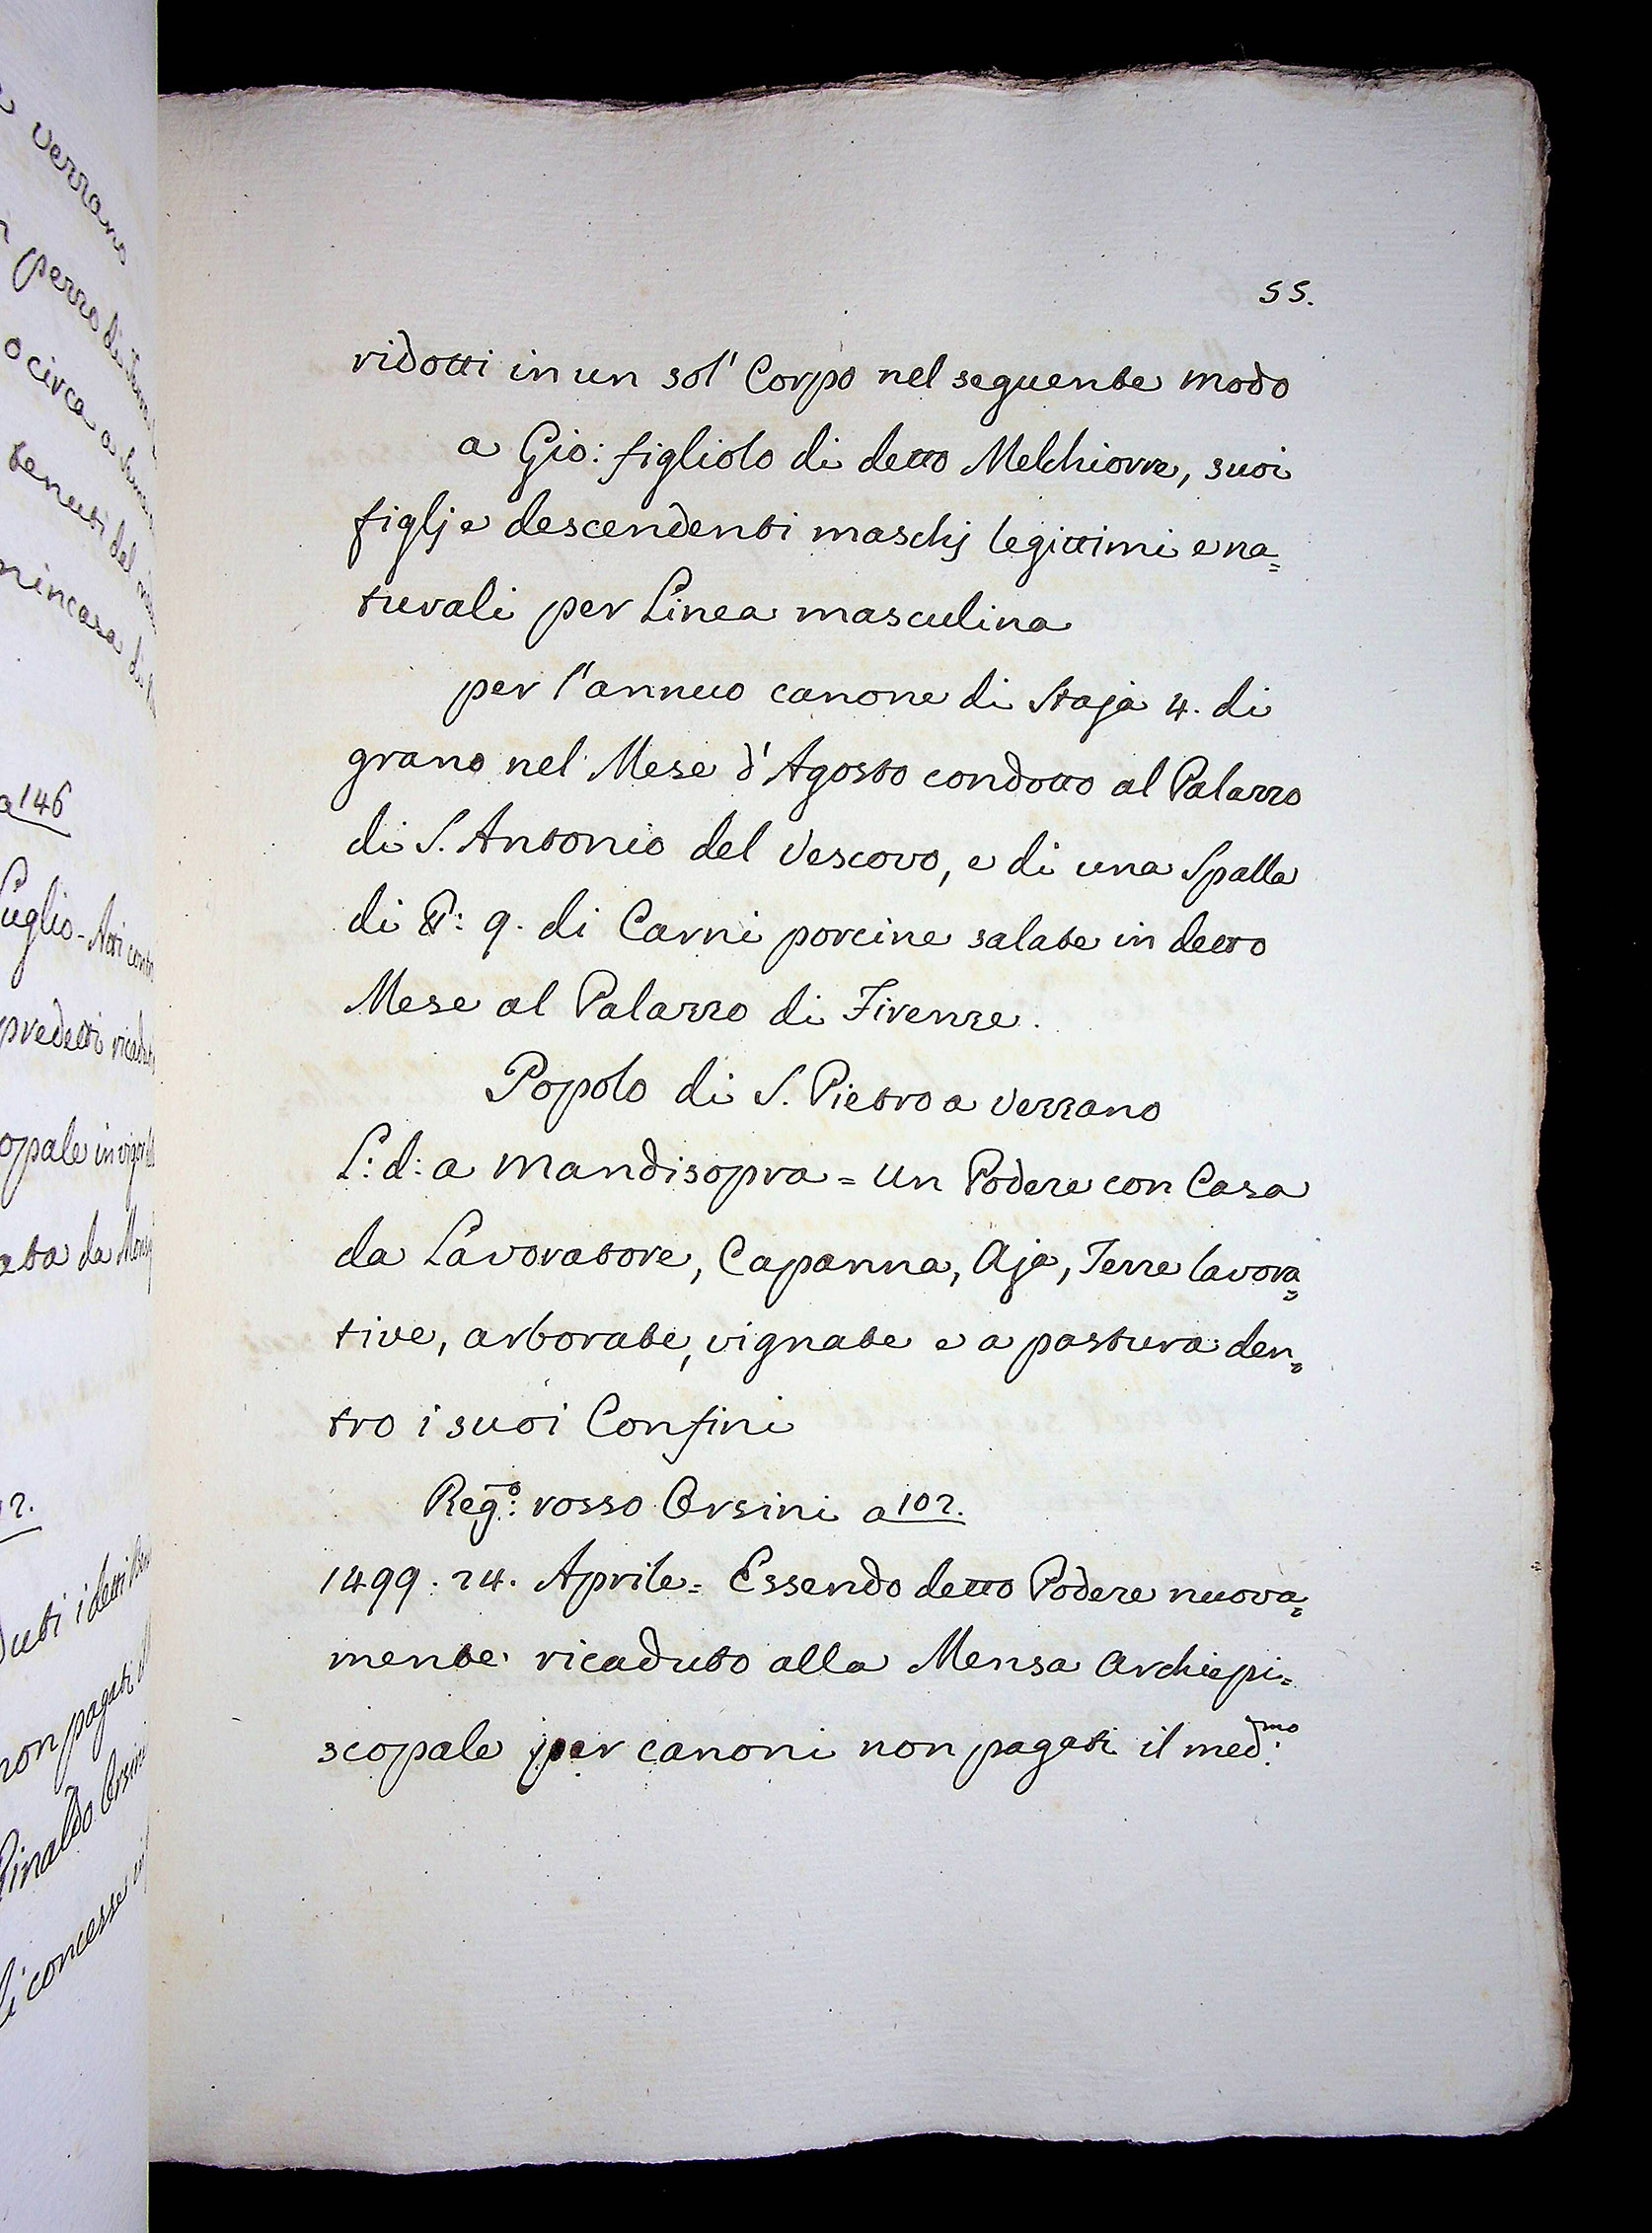 55.
ridotti in un sol' Corpo nel seguente modo
a Gio: figliolo di detto Melchiorre, suoi
figlj e descendenti maschj legittimi e na=
turali per Linea masculina
per l'annuo canone di Staja 4. di
grano nel Mese d'Agosto condotto al Palazzo
di S. Antonio del Vescovo, e di una Spalla
di 9. di Carni porcine salate in detto
Mese al Palazzo di Firenze.
Popolo di S. Pietro a Verzano
L: d: a Mandisopra = Un Podere con Casa
da Lavoratore, Capanna, Aja, Terre lavora=
tive, arborate, vignate e a pastura den=
tro i suoi Confini
Reg:o rosso Orsini a 102.
1499. 24. Aprile = Essendo detto Podere nuova=
mente ricaduto alla Mensa Archiepi=
scopale per canoni non pagati il med:mo
verrano
o circa a
tenuti del
in casa di
a 146
Luglio - Atti
predetti
opale in
ata da
2.
non pagati
Rinaldo Orsini
li concesse